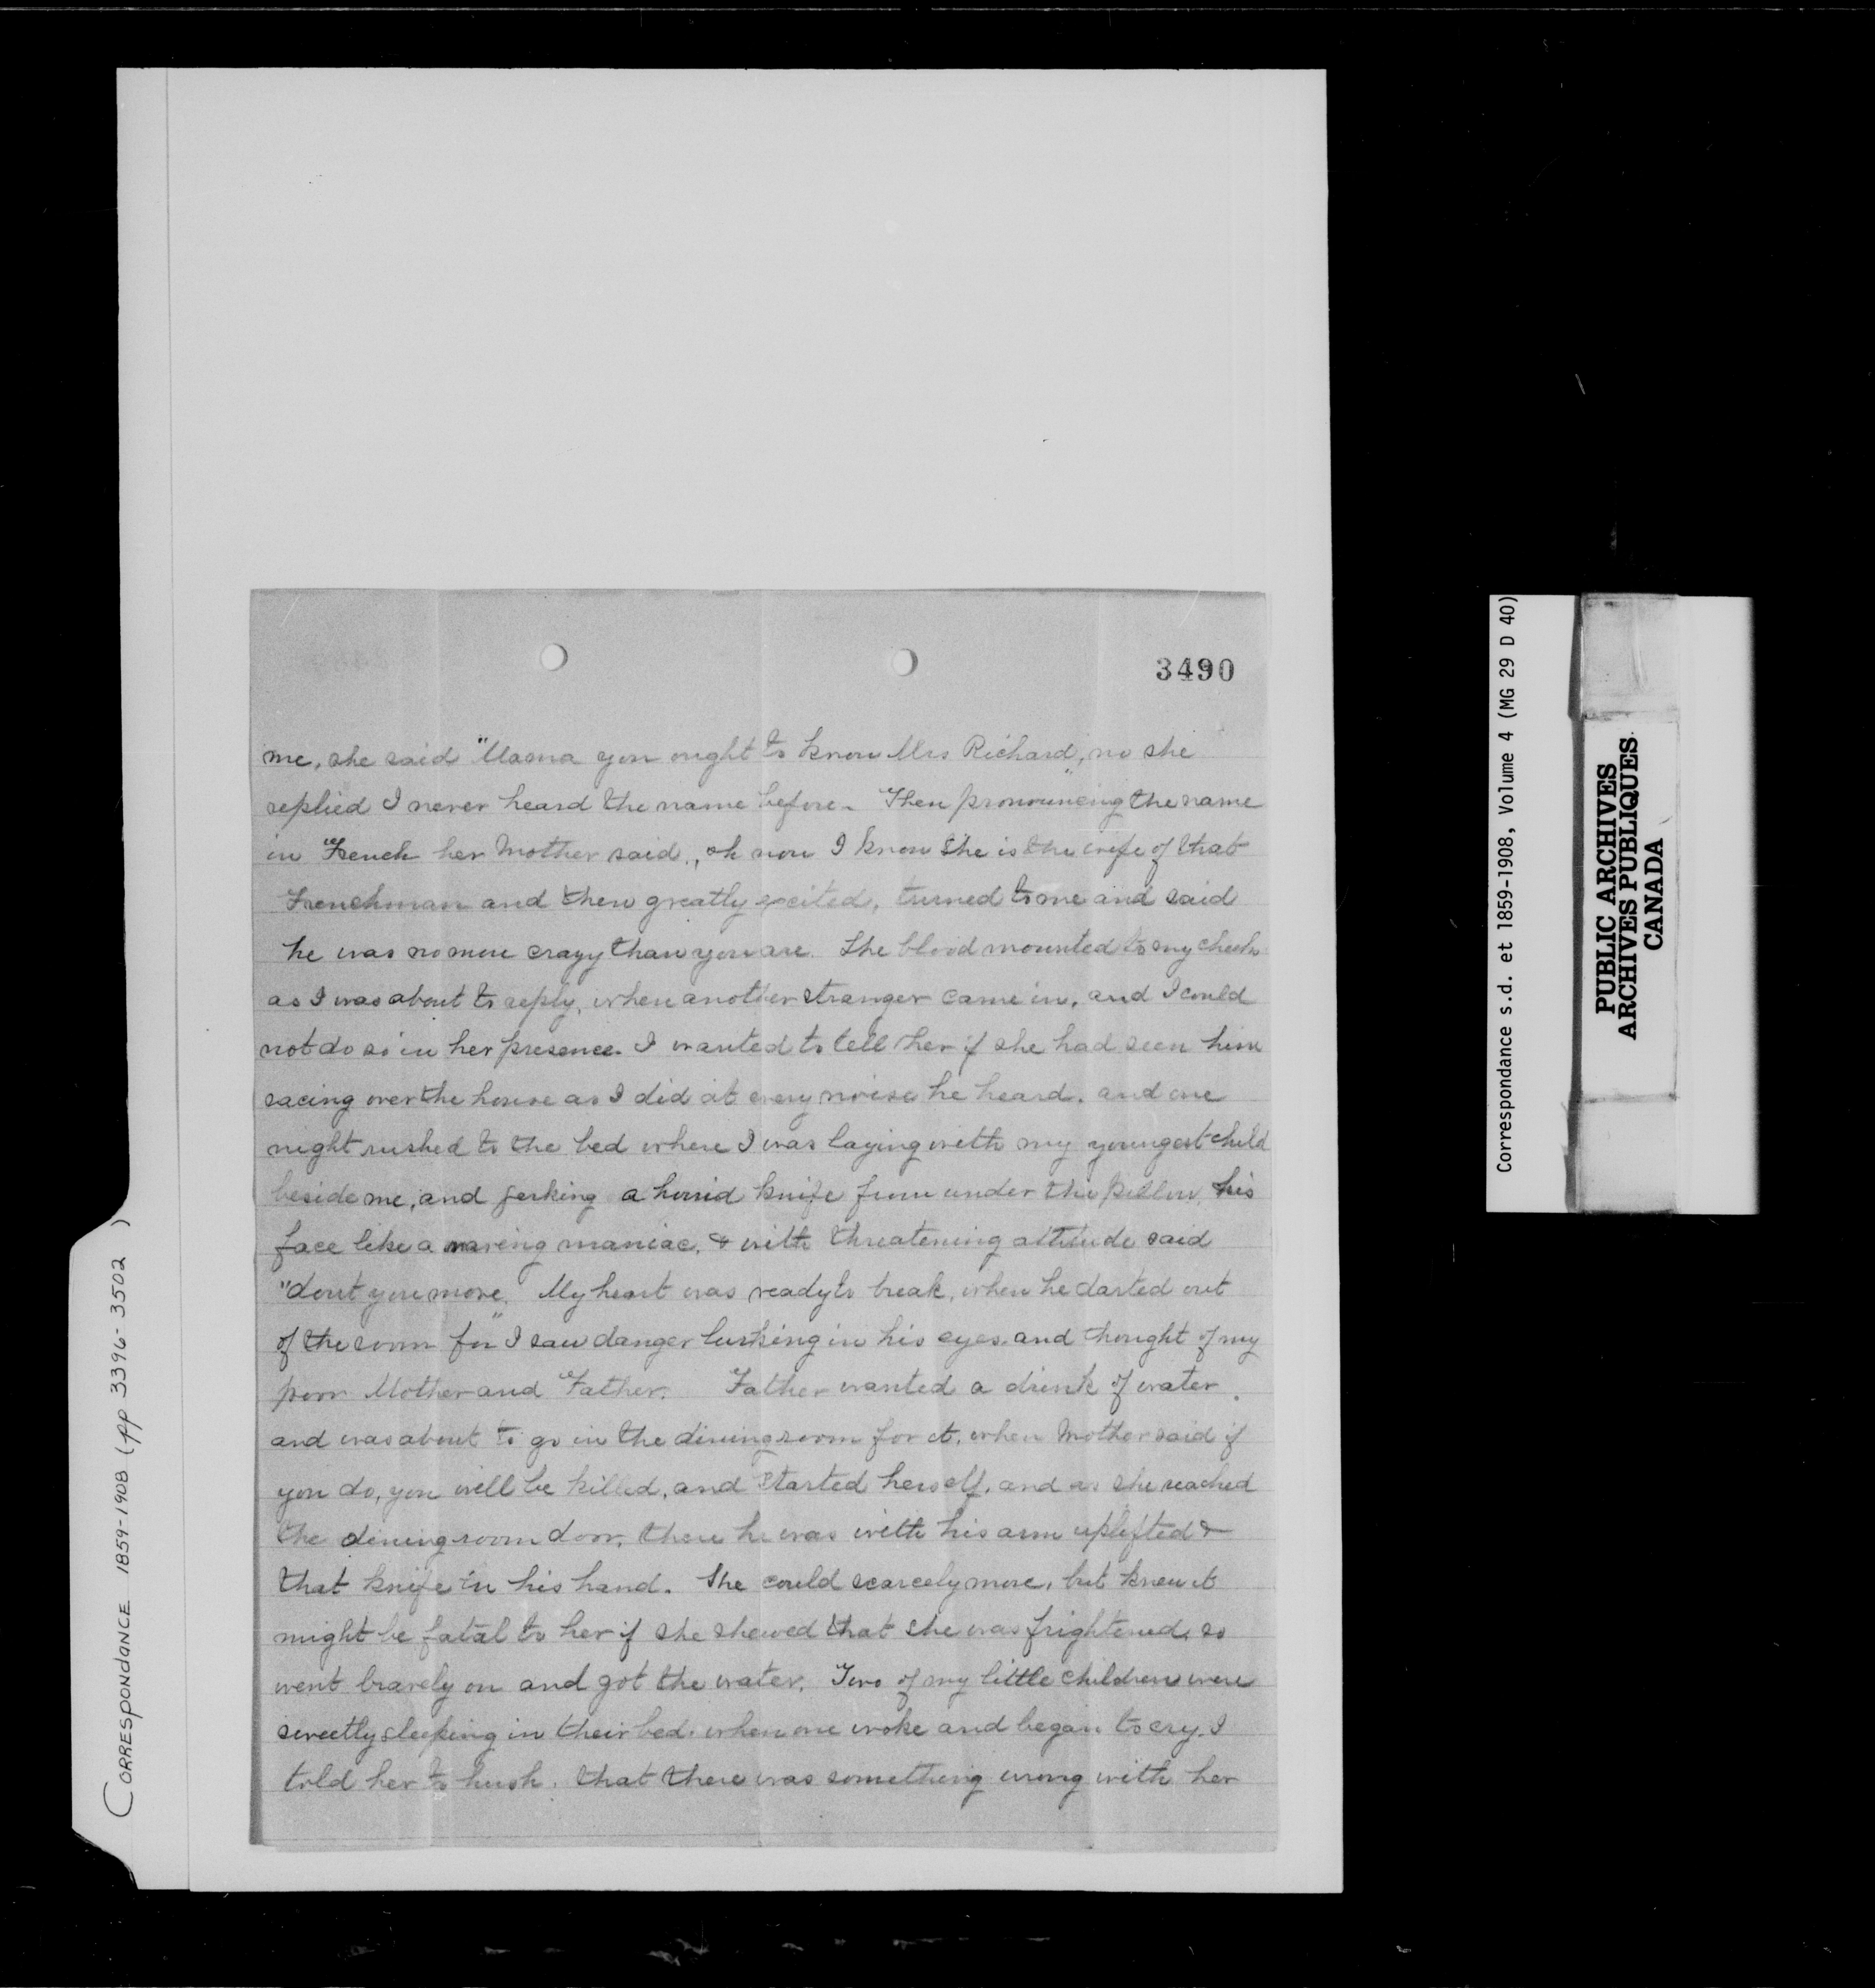 3490
me, she said "Mama you ought to know Mrs Richard", no she
replied I never heard the name before. Then pronouncing the name
in French her Mother said, oh now I know she is the wife of that
Frenchman and then greatly excited, turned to me and said
he was no more crazy than you are. The blood mounted to my cheeks
as I was about to reply, when another stranger came in, and I could
not do so in her presence. I wanted to tell her if she had seen him
racing over the house as I did at every noise he heard, and one
night rushed to the bed where I was laying with my youngest child
beside me, and jerking a horrid knife from under the pillow, his
face like a raving maniac, & with threatening attitude said
"dont you move," My heart was ready to break, when he darted out
of the room for I saw danger lurking in his eyes, and thought of my
poor Mother and Father. Father wanted a drink of water.
and was about to go in the diningroom for it, when Mother said if
you do, you will be killed, and started herself, and as she reached
the diningroom door, there he was with his arm uplifted &
that knife in his hand. She could scarcely move, but knew it
might be fatal to her if she shewed that she was frightened, so
went bravely on and got the water. Two of my little children were
sweetly sleeping in their bed. when one woke and began to cry. I
told her to hush, that there was something wrong with her
CORRESPONDANCE 1859-1908 (pp 3396-3502)
Correspondance s.d. et 1859-1908, Volume 4 (MG 29 D 40)
PUBLIC ARCHIVES
ARCHIVES PUBLIQUES
CANADA